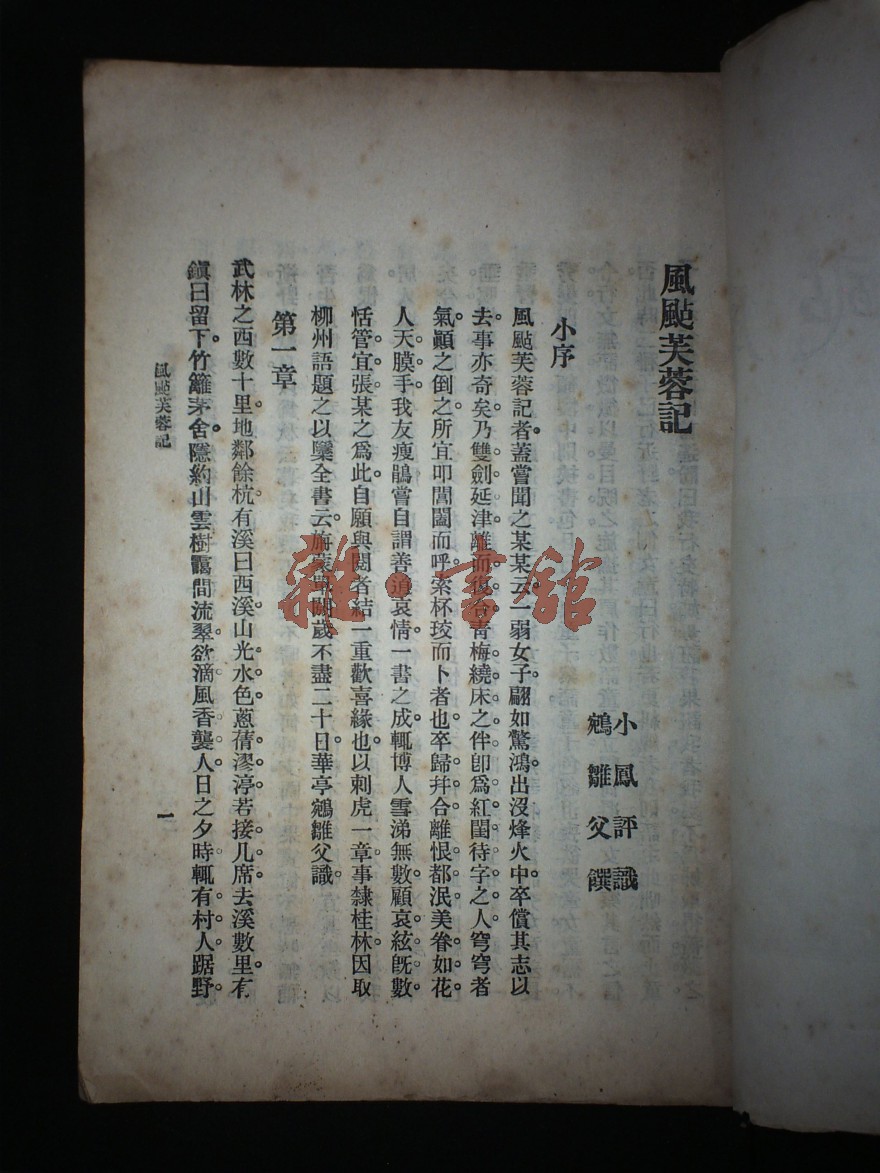 風颭芙蓉記
小鳳評識
鵷雛父饌
小序
風颭芙蓉記者。蓋嘗聞之某某云。一弱女子。翩如驚鴻。出沒烽火中。卒償其志以
去。事亦奇矣。乃雙劍延津。離而復合。青梅繞床之伴。卽爲紅閨待字之人。穹穹者
氣。顚之倒之。所宜叩閶闔而呼。案杯珓而卜者也。卒歸幷合。離恨都泯。美眷如花。
人天膜手。我友瘦鵑。嘗自謂善道哀情。一書之成。輒博人雪涕無數。顧哀絃旣數。
恬管宜張。某之爲此。自願與閱者結一重歡喜緣也。以刺虎一章。事隸桂林。因取
柳州語題之。以槩全書云。旃蒙單閼歲不盡二十日。華亭鵷雛父識。
第一章
武林之西數十里。地鄰餘杭。有溪曰西溪。山光水色。蔥蒨漻渟。若接几席。去溪數里。有
鎭曰留下。竹籬茅舍。隱約山雲樹靄間。流翠欲滴。風香襲人。日之夕時。輒有村人踞野
風颭芙蓉記
一
雜·書館